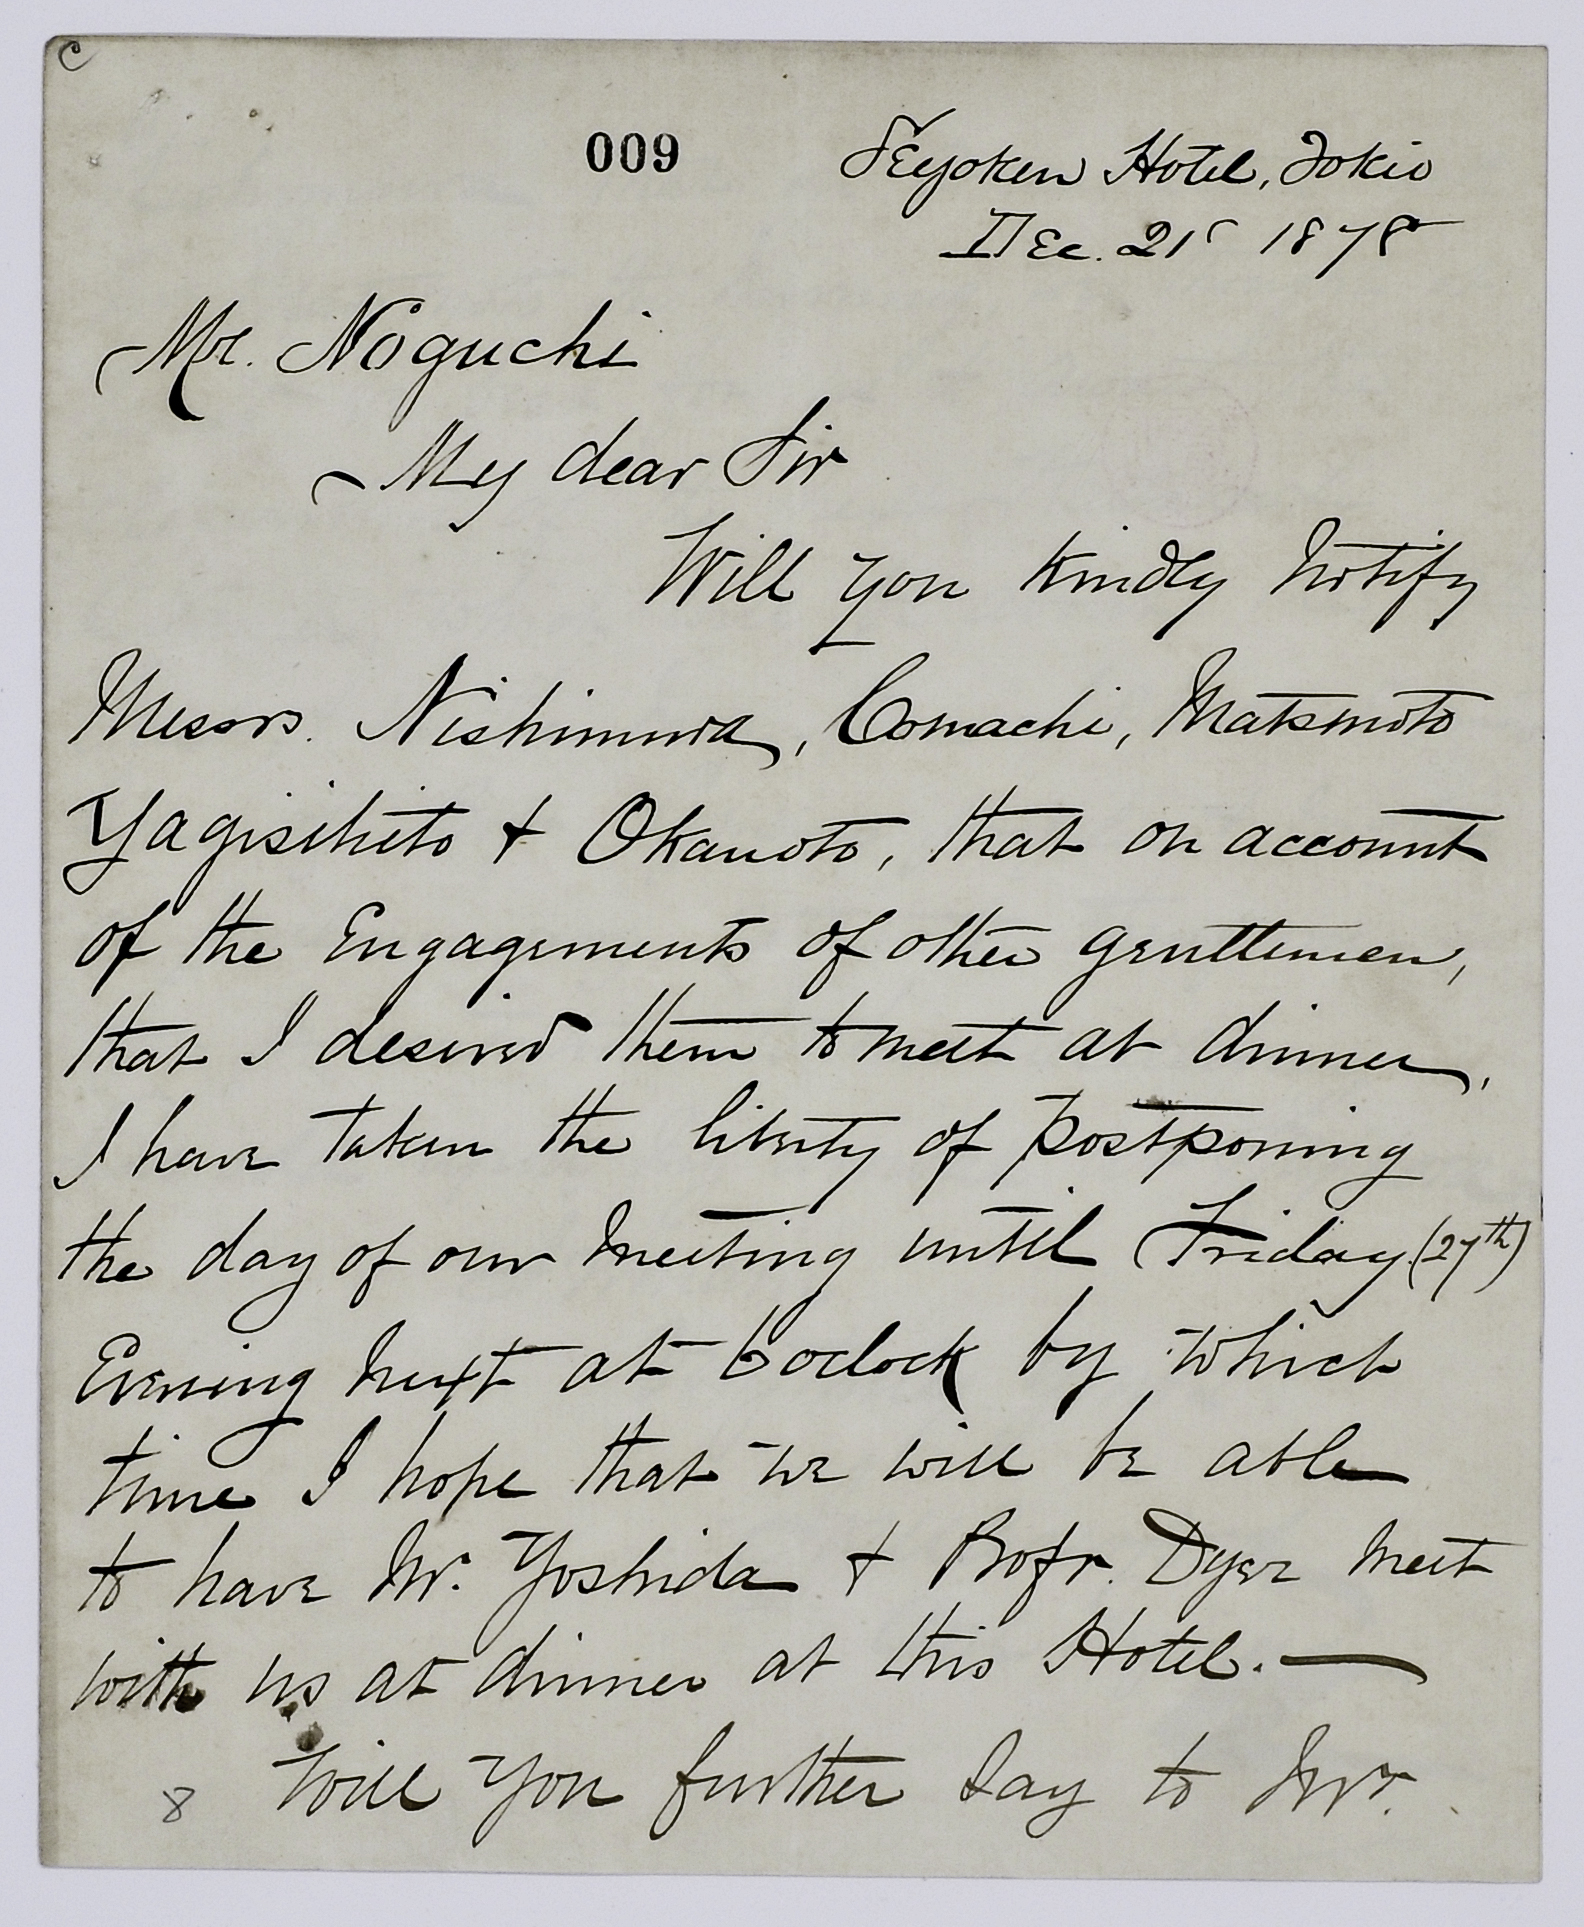 C
009
Seyoken Hotel, Tokio
Dec. 21st 1878
Mr. Noguchi
My dear Sir
Will you kindly notify
Messrs. Nishimura, Comachi, Matsmoto
Yagisihito & Okamoto, that on account
of the Engagements of other gentlemen,
that I desired them to meet at dinner,
I have taken the liberty of postponing
the day of our meeting until Friday (27th)
Evening next at 6 oclock by which
time I hope that we will be able
to have Mr. Yoshida & Profr. Dyer meet
with us at dinner at this Hotel. —
Will you further say to Mr.
8